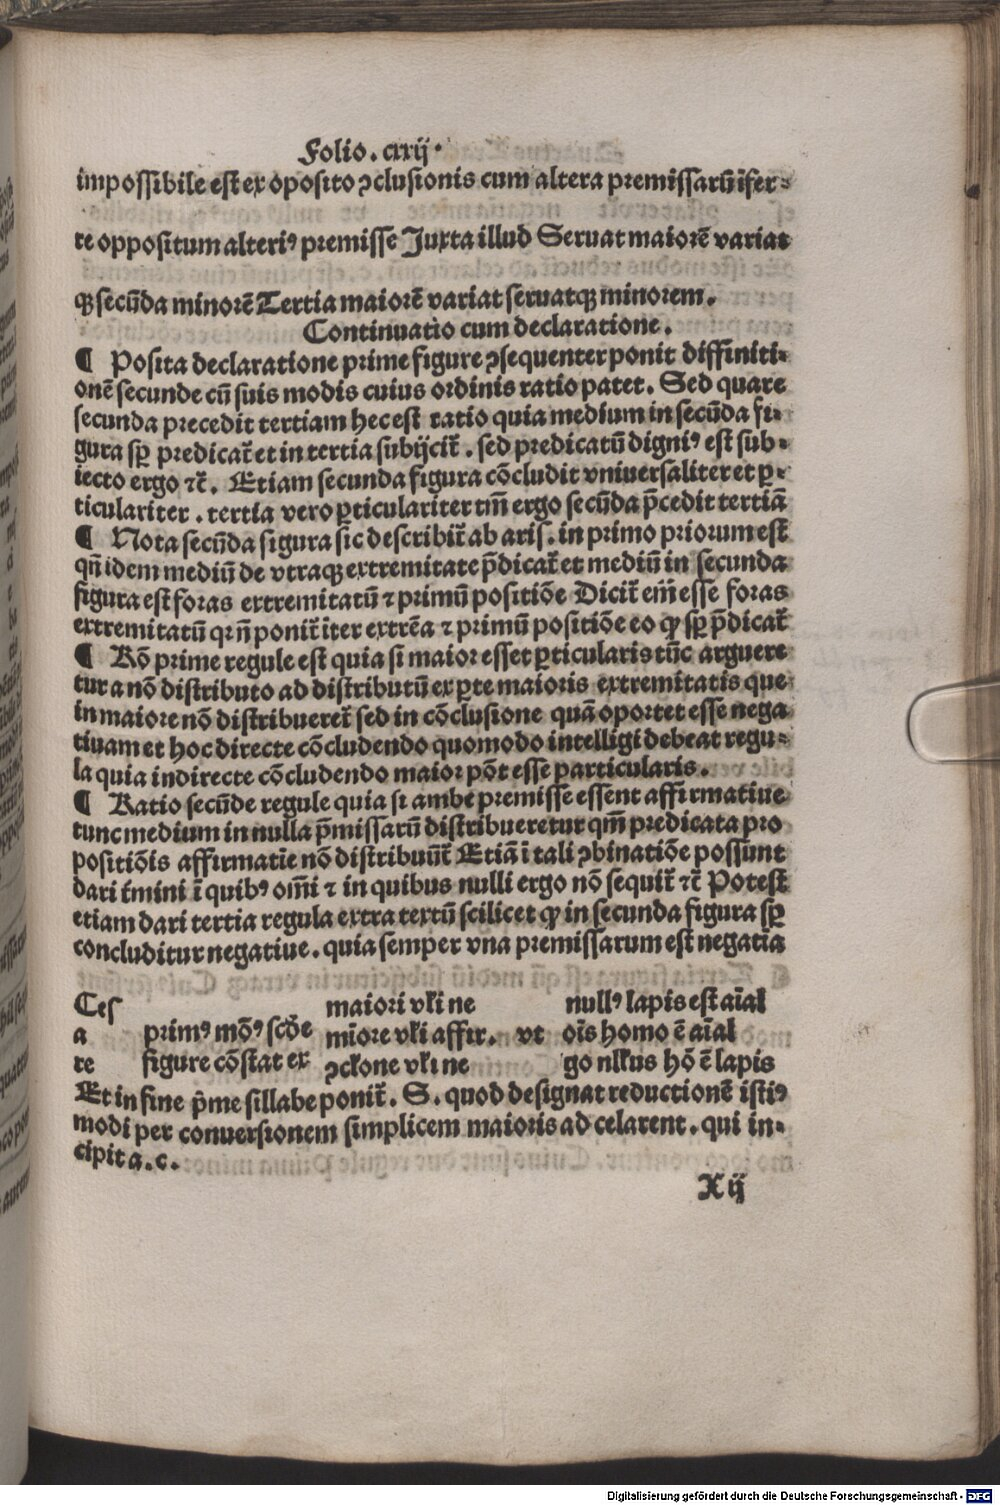 Folio. cxxij.
impossibile est ex oposito ꝯclusionis cum altera premissarū īfer-
re oppositum alteriꝰ premisse Juxta illud Seruat maiorē variat
qꝫ secūda minorē Tertia maiorē variat seruatqꝫ minorem.
Continuatio cum declaratione.
¶ Posita declaratione prime figure ꝯsequenter ponit diffiniti-
onē secunde cū suis modis cuius ordinis ratio patet. Sed quare
secunda precedit tertiam hec est ratio quia medium in secūda fi-
gura sꝑ predicat᷑ et in tertia subijcit᷑. sed predicatū digniꝰ est sub-
iecto ergo ⁊c̄. Etiam secunda figura cōcludit vniuersaliter et ꝑ-
ticulariter. tertia vero ꝑticulariter tm̄ ergo secūda p̄cedit tertiā
¶ Nota secūda figura sic describit᷑ ab aris. in primo priorum est
qn̄ idem mediū de vtraqꝫ extremitate p̄dicat᷑ et mediū in secunda
figura est foras extremitatū ⁊ primū positiōe Dicit᷑ em̄ esse foras
extremitatū qꝛ nō ponit᷑ īter extrēa ⁊ primū positiōe eo ꝙ sꝑ p̄dicat᷑
¶ Rō prime regule est quia si maior esset ꝑticularis tūc arguere
tur a nō distributo ad distributū ex ꝑte maioris extremitatis que
in maiore nō distribueret᷑ sed in cōclusione quā oportet esse nega
tiuam et hoc directe cōcludendo quomodo intelligi debeat regu-
la quia indirecte cōcludendo maior pōt esse particularis.
¶ Ratio secūde regule quia si ambe premisse essent affirmatiue
tunc medium in nulla p̄missarū distribueretur qm̄ predicata pro
positiōis affirmatīe nō distribuūt᷑ Etiā ī tali ꝯbinatiōe possunt
dari t᷑mini ī quibꝰ om̄i ⁊ in quibus nulli ergo nō sequit᷑ ⁊c̄ Potest
etiam dari tertia regula extra textū scilicet ꝙ in secunda figura sꝑ
concluditur negatiue. quia semper vna premissarum est negatīa
Ces maiori vƚi ne nullꝰ lapis est aīal
a primꝰ mōꝰ scd̄e mīore vƚi affir. vt oīs homo ē aīal
re figure cōstat ex ꝯcƚone vƚi ne go nƚƚus hō ē lapis
Et in fine p̄me sillabe ponit᷑. S. quod designat reductionē istiꝰ
modi per conuersionem simplicem maioris ad celarent. qui in-
cipit a. c.
X ij
Digitalisierung gefördert durch die Deutsche Forschungsgemeinschaft - DFG